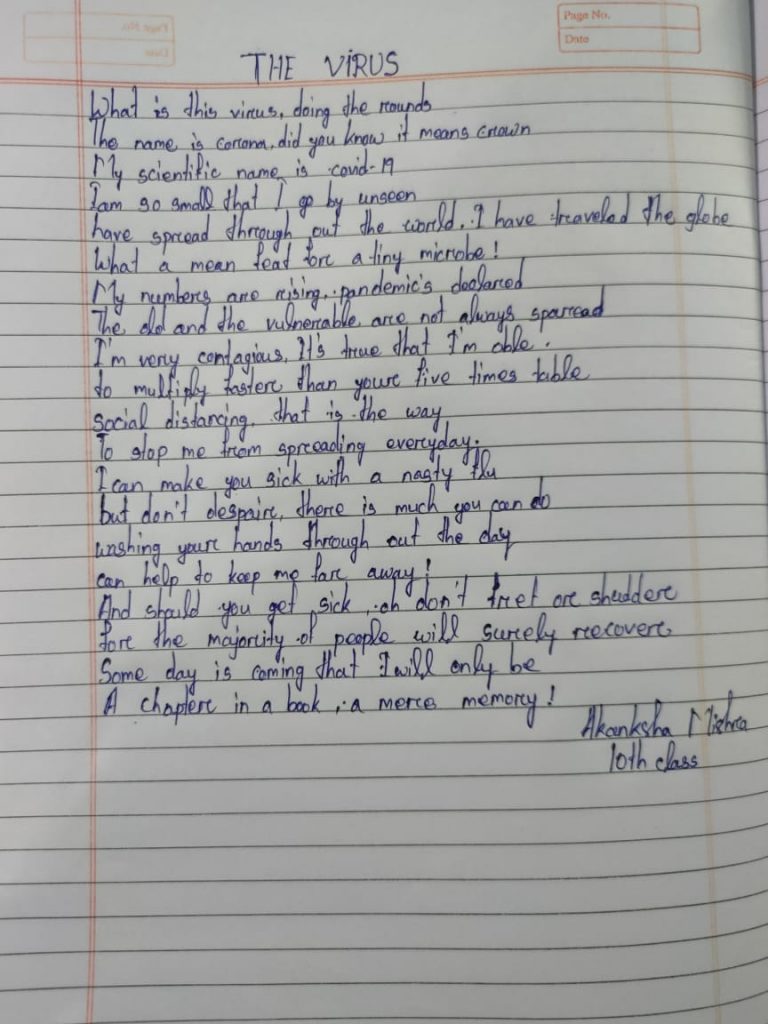 Page No.
Date
THE VIRUS
What is this virus, doing the rounds
The name is corona, did you know it means crown
My scientific name is covid-19
I am so small that I go by unseen
have spread through out the world. I have traveled the globe
What a mean feat for a tiny microbe!
My numbers are rising, pandemic's declared
The old and the vulnerable are not always sparread
I'm very contagious, It's true that I'm able.
to multiply faster than your five times table
social distancing, that is the way
To stop me from spreading everyday.
I can make you sick with a nasty flu
but don't despair, there is much you can do
washing your hands through out the day
can help to keep me far away!
And should you get sick, oh don't fret or shudder
for the majority of people will surely recover.
Some day is coming that I will only be
A chapter in a book, a mere memory!
Akanksha Mishra
10th class